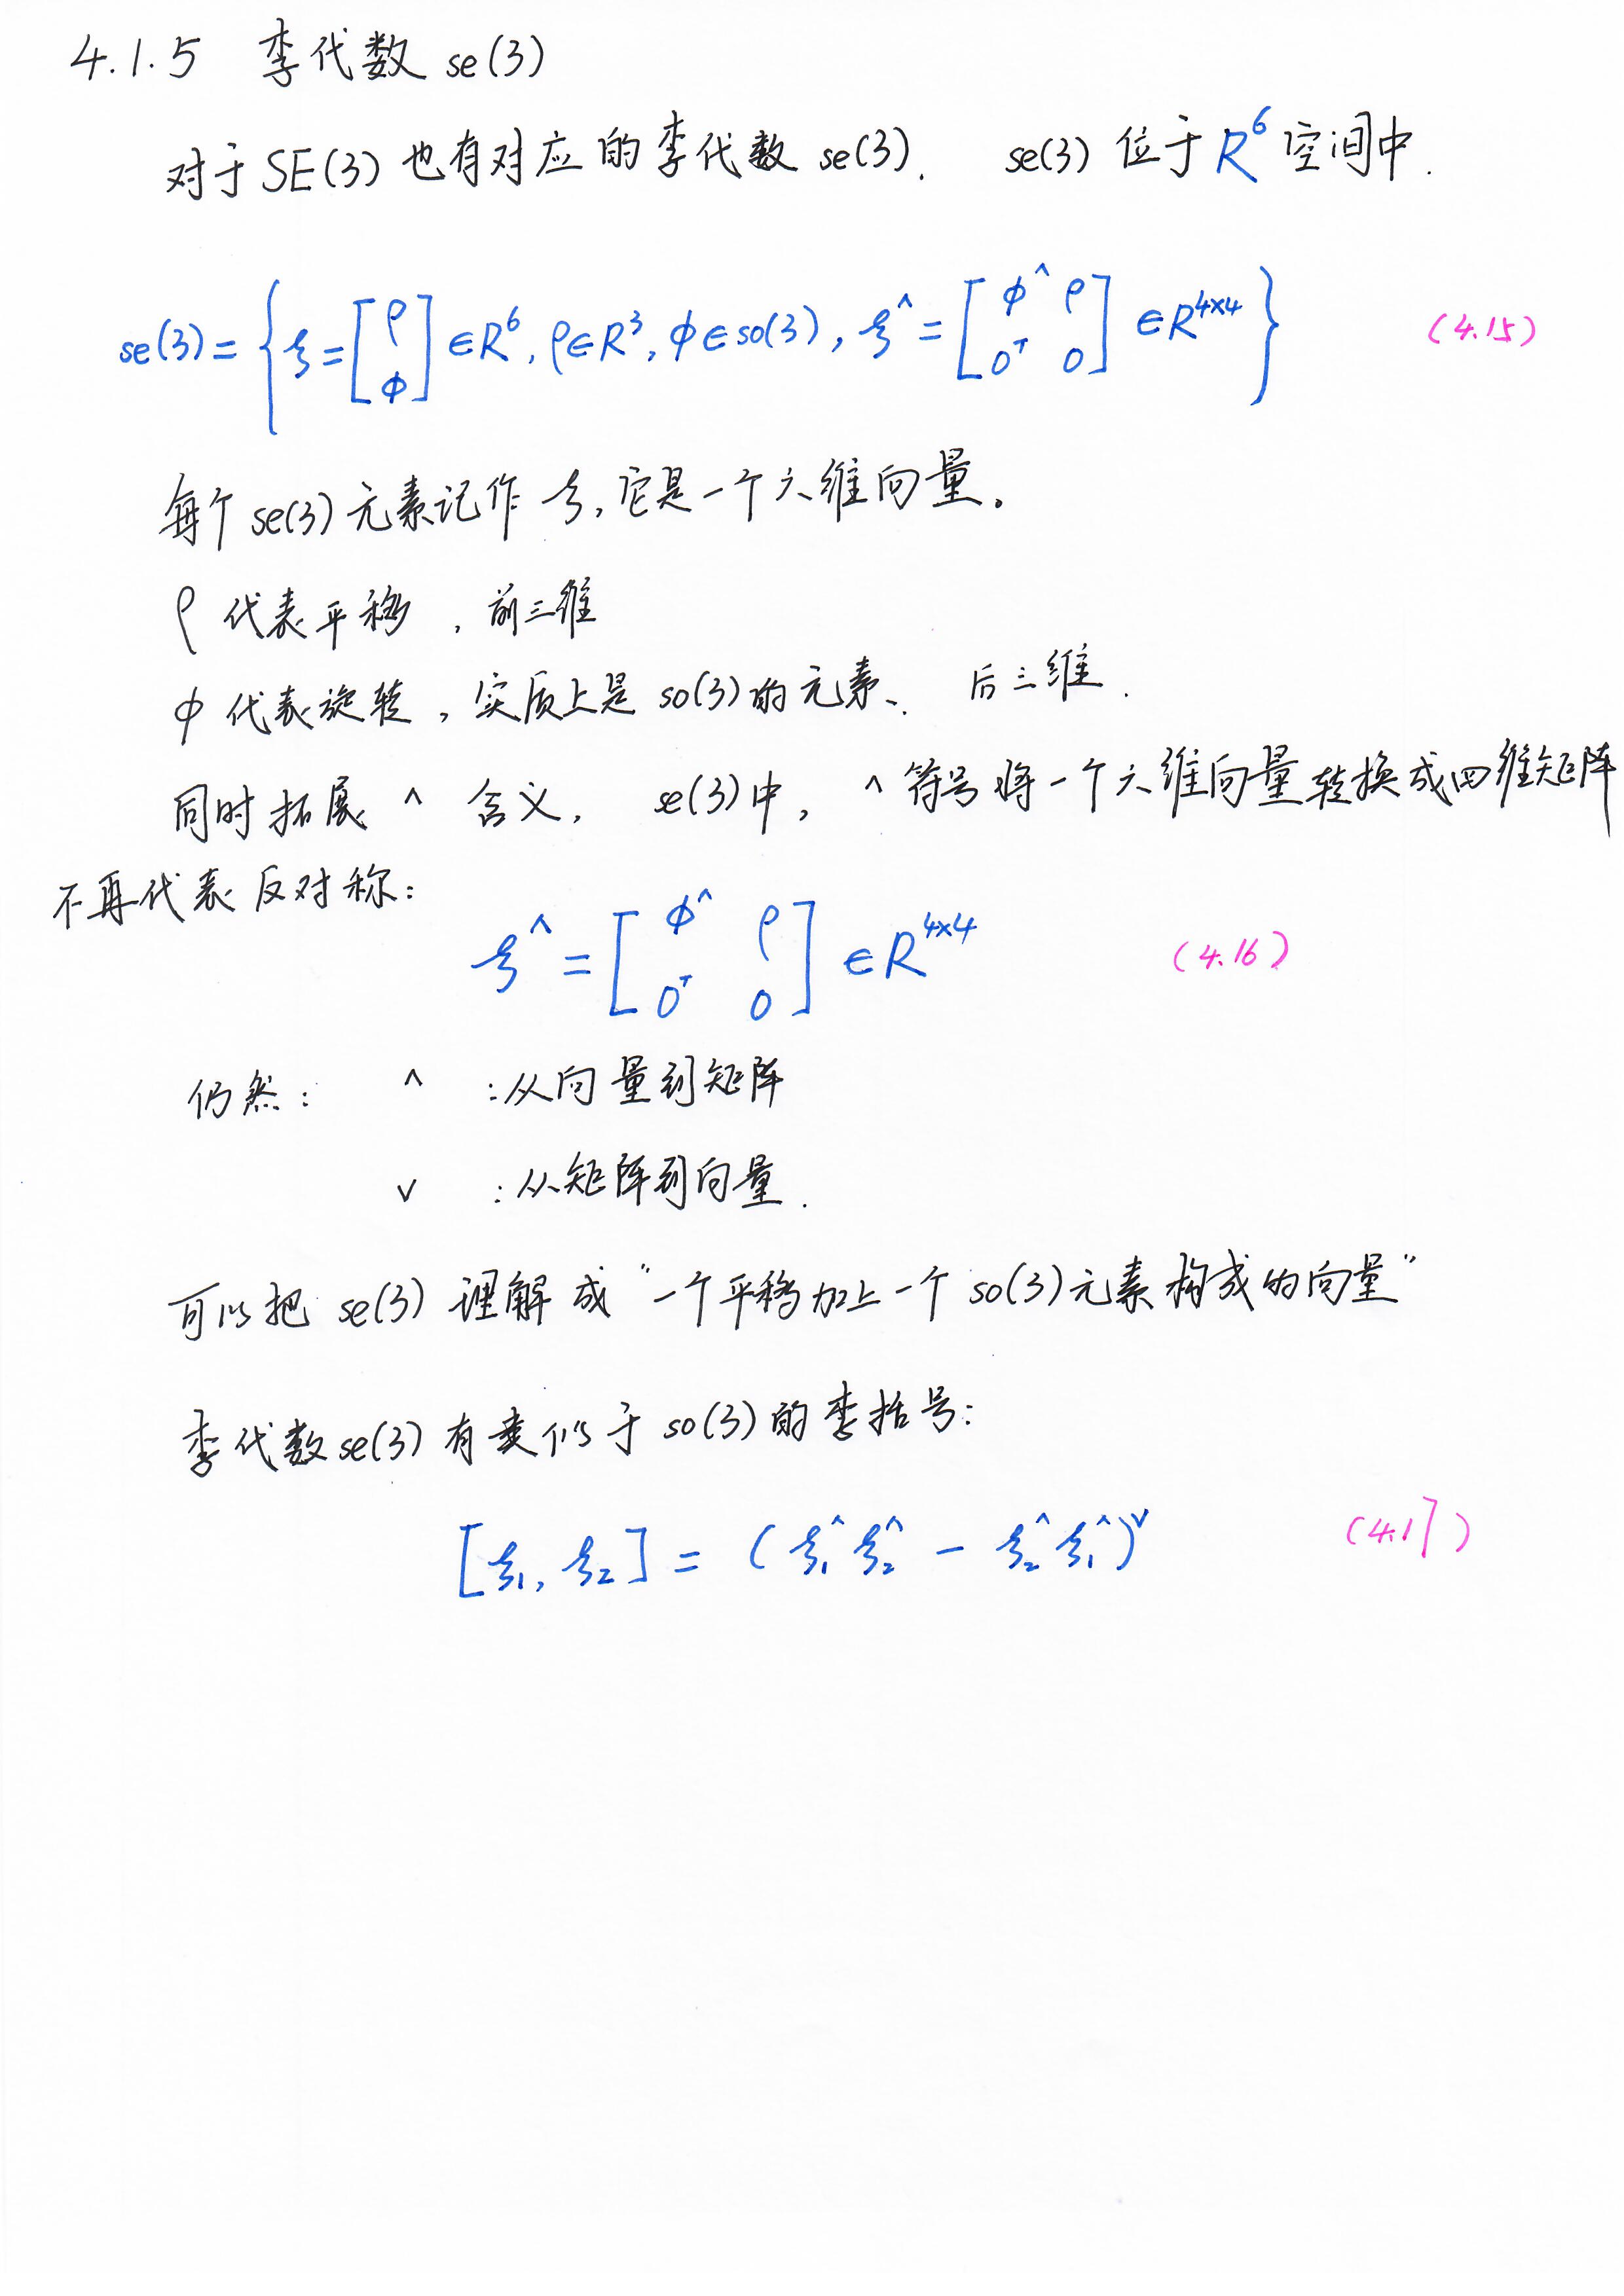 4.1.5 李代数 se(3)
对于SE(3)也有对应的李代数 se(3). se(3) 位于 R⁶ 空间中.
se(3) = { ξ = [ρ; ϕ] ∈ R⁶, ρ ∈ R³, ϕ ∈ so(3), ξ^ = [ϕ^ ρ; 0ᵀ 0] ∈ R⁴ˣ⁴ } (4.15)
每个 se(3) 元素记作 ξ, 它是一个六维向量。
ρ 代表平移 , 前三维
ϕ 代表旋转 , 实质上是 so(3) 的元素、 后三维 .
同时拓展 ^ 含义, se(3)中, ^ 符号将一个六维向量转换成四维矩阵
不再代表反对称:
ξ^ = [ϕ^ ρ; 0ᵀ 0] ∈ R⁴ˣ⁴ (4.16)
仍然: ^ :从向量到矩阵
∨ :从矩阵到向量.
可以把 se(3) 理解成 "一个平移加上一个 so(3)元素构成的向量"
李代数se(3)有类似于 so(3)的李括号:
[ξ₁, ξ₂] = (ξ₁^ ξ₂^ − ξ₂^ ξ₁^)∨ (4.17)